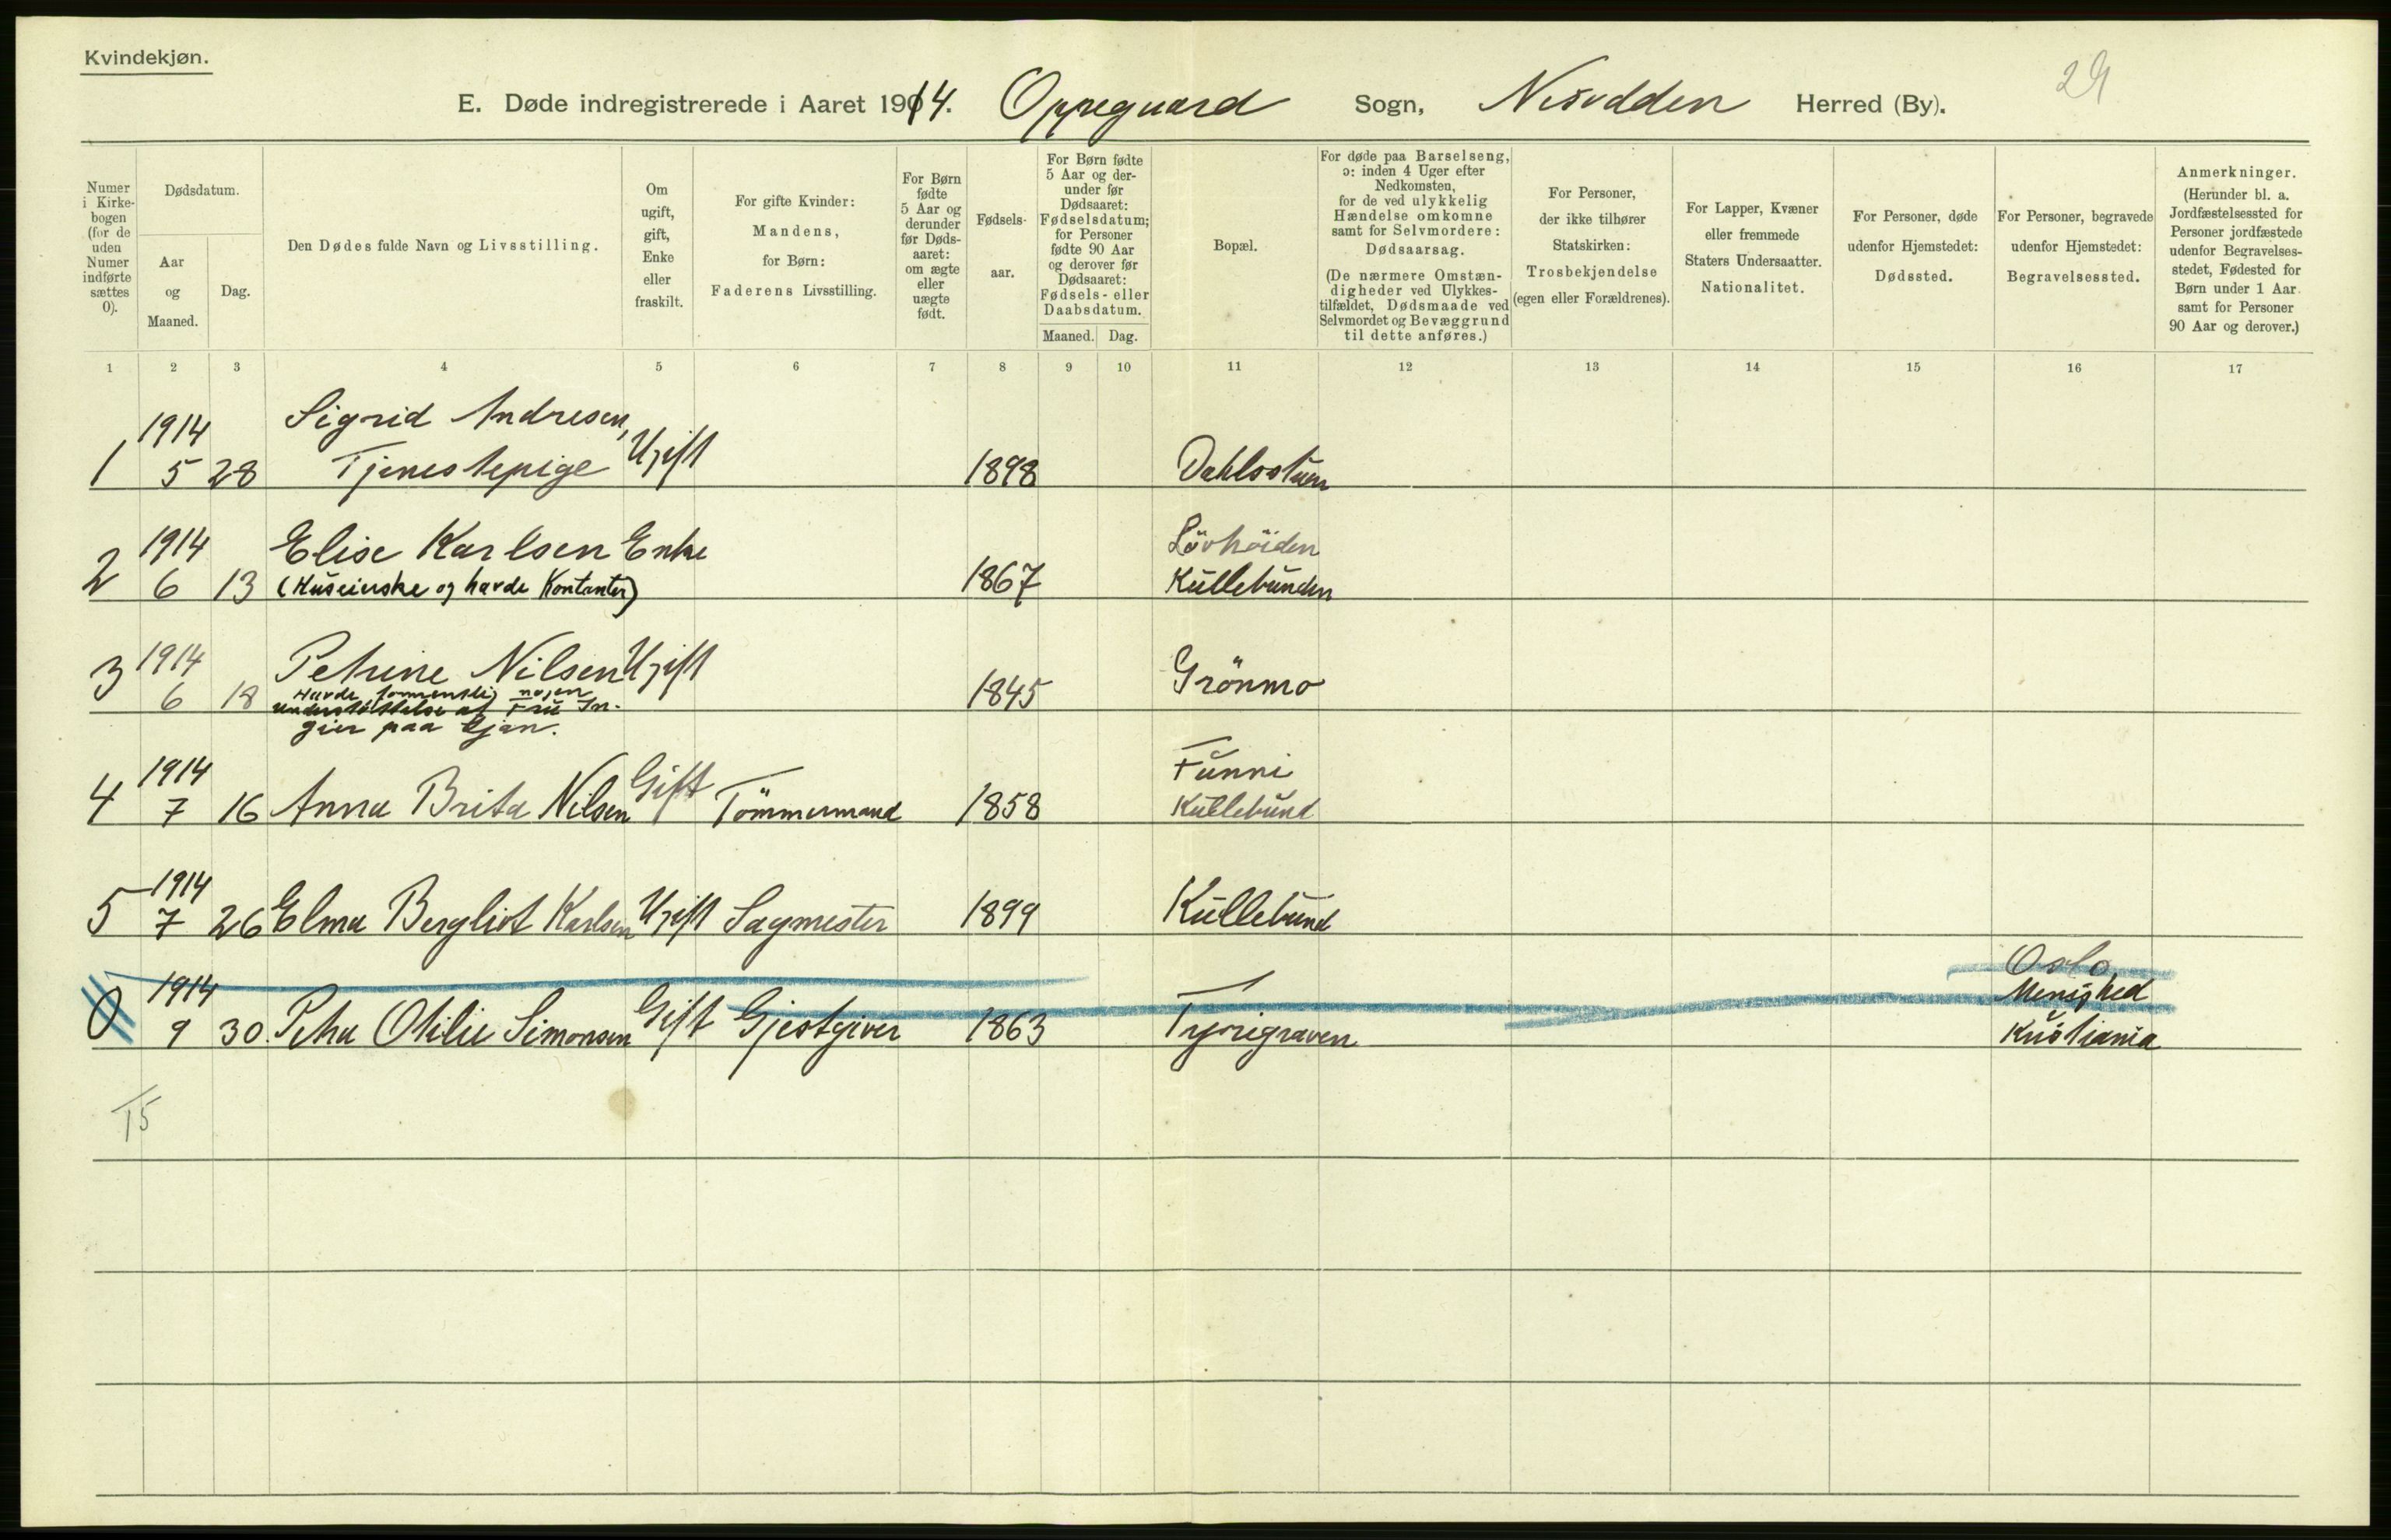 Kvindekjøn.
E. Døde indregistrerede i Aaret 1914. Oppegaard Sogn, Nesodden Herred (By).
29
Numer i Kirkebogen (for de uden Numer indførte sættes 0).
Dødsdatum.
Aar og Maaned.
Dag.
Den Dødes fulde Navn og Livsstilling.
Om ugift, gift, Enke eller fraskilt.
For gifte Kvinder: Mandens, for Børn: Faderens Livsstilling.
For Børn fødte 5 Aar og derunder før Dødsaaret: om ægte eller uægte født.
Fødselsaar.
For Børn fødte 5 Aar og derunder før Dødsaaret: Fødselsdatum; for Personer fødte 90 Aar og derover før Dødsaaret: Fødsels- eller Daabsdatum.
Maaned. Dag.
Bopæl.
For døde paa Barselseng, ɔ: inden 4 Uger efter Nedkomsten, for de ved ulykkelig Hændelse omkomne samt for Selvmordere: Dødsaarsag. (De nærmere Omstændigheder ved Ulykkestilfældet, Dødsmaade ved Selvmordet og Bevæggrund til dette anføres.)
For Personer, der ikke tilhører Statskirken: Trosbekjendelse (egen eller Forældrenes).
For Lapper, Kvæner eller fremmede Staters Undersaatter. Nationalitet.
For Personer, døde udenfor Hjemstedet: Dødssted.
For Personer, begravede udenfor Hjemstedet: Begravelsessted.
Anmerkninger. (Herunder bl. a. Jordfæstelsessted for Personer jordfæstede udenfor Begravelsesstedet, Fødested for Børn under 1 Aar samt for Personer 90 Aar og derover.)
1 2 3 4 5 6 7 8 9 10 11 12 13 14 15 16 17
1914 Sigrid Andresen,
1 5 28 Tjenestepige Ugift 1898 Dahlsstuen
1914 Elise Karlsen Enke Lövhöiden
2 6 13 (Huseierske og havde Kontanter) 1867 Kullebunden
3 1914 Petrine Nilsen Ugift Grönmo
6 18 Havde fornentlig nogen 1845
understöttelse af Frü In-
gier paa Ljan.
1914 Gift Funni
4 7 16 Anna Brita Nilsen Tömmermand 1858 Kullebund
1914
5 7 26 Elma Bergliot Karlsen Ugift Sagmester 1899 Kullebund
Oslo
1914 Menighed
0 9 30. Petra Otilie Simonsen Gift Gjestgiver 1863 Tyrigraven Kristiania
T5